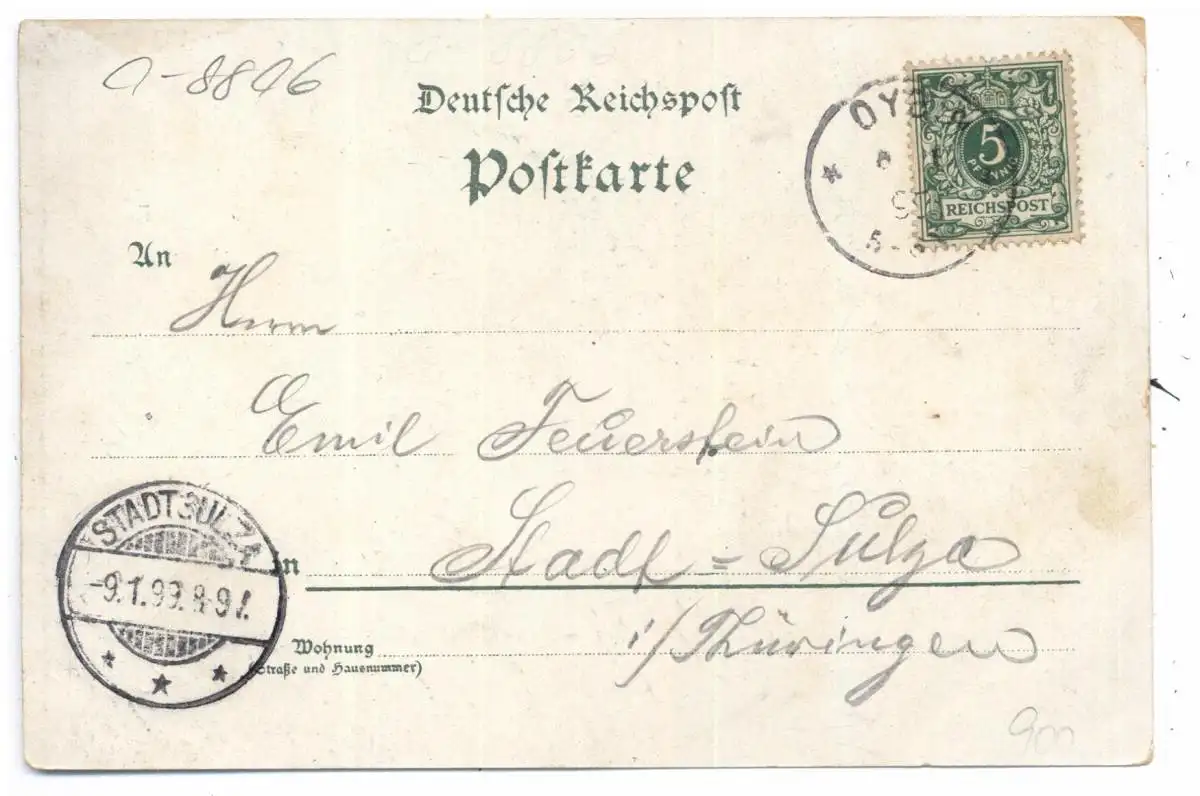 a-8806
Deutsche Reichspost
Postkarte
OYBIN
5
PFENNIG
REICHSPOST
An
Herrn
Emil Feuerstein
in Stadt=Sulza
i/Thüringen
STADTSULZA
-9.1.99.8-9V.
Wohnung
(Straße und Hausnummer)